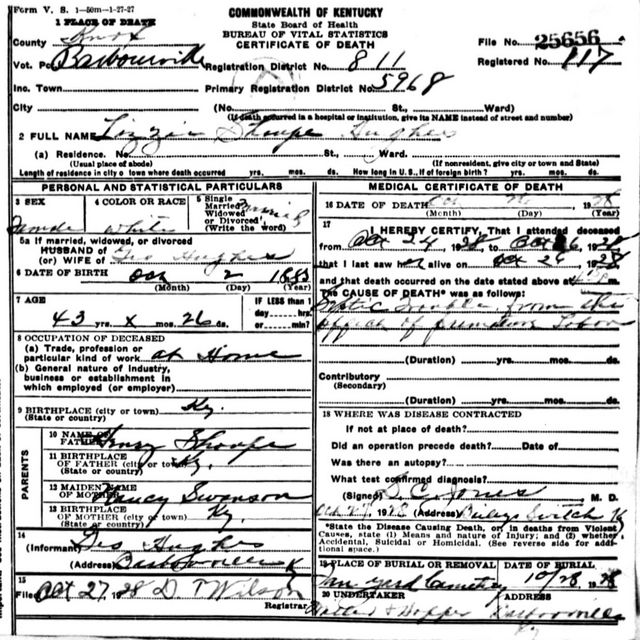 Form V. S. 1-50m-1-27-27
COMMONWEALTH OF KENTUCKY
State Board of Health
BUREAU OF VITAL STATISTICS
CERTIFICATE OF DEATH
1 PLACE OF DEATH
County Knox
File No. 25656
Vot. Pct Barbourville Registration District No. 811
Registered No. 117
Inc. Town Primary Registration District No. 5968
City (No. St., Ward)
(If death occurred in a hospital or institution, give its NAME instead of street and number)
2 FULL NAME Lizzie Thorpe Hughes
(a) Residence. No. St., Ward.
(Usual place of abode) (If nonresident, give city or town and State)
Length of residence in city or town where death occurred yrs. mos. ds. How long in U. S., if of foreign birth? yrs. mos. ds.
PERSONAL AND STATISTICAL PARTICULARS
3 SEX Female
4 COLOR OR RACE White
5 Single Married Widowed or Divorced (Write the word) Married
5a If married, widowed, or divorced
HUSBAND OF
(or) WIFE of Geo Hughes
6 DATE OF BIRTH Oct 2 1885
(Month) (Day) (Year)
7 AGE IF LESS than 1
43 yrs. x mos. 26 ds. day,---hrs. or---min?
8 OCCUPATION OF DECEASED
(a) Trade, profession or
particular kind of work at Home
(b) General nature of industry,
business or establishment in
which employed (or employer)
9 BIRTHPLACE (city or town) Ky.
(State or country)
PARENTS
10 NAME OF FATHER Henry Thorpe
11 BIRTHPLACE
OF FATHER (city or town) Ky.
(State or country)
12 MAIDEN NAME
OF MOTHER Nancy Swanson
13 BIRTHPLACE
OF MOTHER (city or town) Ky.
(State or country)
14
(Informant) Geo Hughes
(Address) Barbourville Ky
15
Filed Oct 27, 1928 D. T Wilson
Registrar
MEDICAL CERTIFICATE OF DEATH
16 DATE OF DEATH Oct 1928
(Month) (Day) (Year)
17
I HEREBY CERTIFY, That I attended deceased
from Oct 24, 1928 to Oct 26, 1928
that I last saw her alive on Oct 26, 1928
and that death occurred on the date stated above at m.
The CAUSE OF DEATH* was as follows:
from the
(Duration) yrs. mos. ds.
Contributory
(Secondary)
(Duration) yrs. mos. ds.
18 WHERE WAS DISEASE CONTRACTED
If not at place of death?
Did an operation precede death? Date of
Was there an autopsy?
What test confirmed diagnosis?
(Signed) Jones M. D.
*State the Disease Causing Death, or, in deaths from Violent
Causes, state (1) Means and nature of Injury; and (2) whether
Accidental, Suicidal or Homicidal. (See reverse side for addi-
tional space.)
19 PLACE OF BURIAL OR REMOVAL DATE OF BURIAL
Cemetery 10/28 1928
20 UNDERTAKER ADDRESS
Hopper Barbourville
Ky